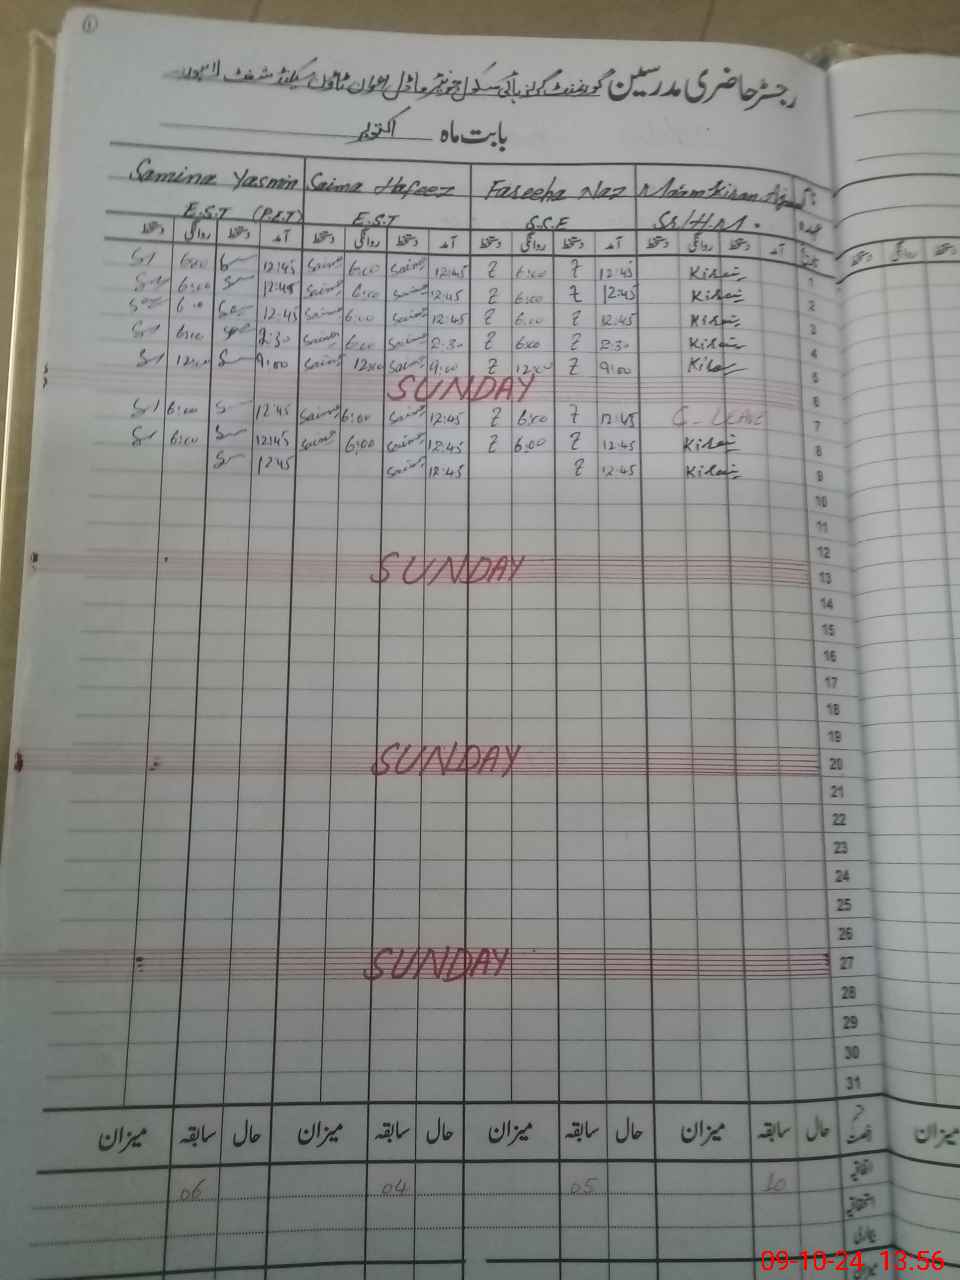 1
رجسٹر حاضری مدرسین گورنمنٹ گرلز ہائی سکول جونیئر ماڈل اعوان ٹاؤن سیکنڈ شفٹ لاہور
بابت ماہ اکتوبر
Samina Yasmin Saima Hafeez Fareeha Naz Ma'am Kiran
E.S.T (P.E.T) E.S.T S.S.E Sr/H.M. عہدہ
دستخط روانگی دستخط آمد دستخط روانگی دستخط آمد دستخط روانگی دستخط آمد دستخط روانگی دستخط آمد تاریخ دستخط روانگی دستخط
6:00 12:45 Saima 6:00 Saima 12:45 6:00 12:45 Kiran 1
6:00 12:45 Saima 6:00 Saima 12:45 6:00 12:45 Kiran 2
6:00 12:45 Saima 6:00 Saima 12:45 6:00 12:45 Kiran 3
6:00 2:30 Saima 6:00 Saima 2:30 6:00 2:30 Kiran 4
12:00 9:00 Saima 12:00 Saima 9:00 12:00 9:00 Kiran 5
SUNDAY 6
6:00 12:45 Saima 6:00 Saima 12:45 6:00 12:45 C-Leave 7
6:00 12:45 Saima 6:00 Saima 12:45 6:00 12:45 Kiran 8
12:45 Saima 12:45 12:45 Kiran 9
10
11
12
SUNDAY 13
14
15
16
17
18
19
SUNDAY 20
21
22
23
24
25
26
SUNDAY 27
28
29
30
31
میزان سابقہ حال میزان سابقہ حال میزان سابقہ حال میزان سابقہ حال رخصت میزان
06 04 05 10 اتفاقیہ
استحقاقیہ
بیماری
میزان
09-10-24 13.56